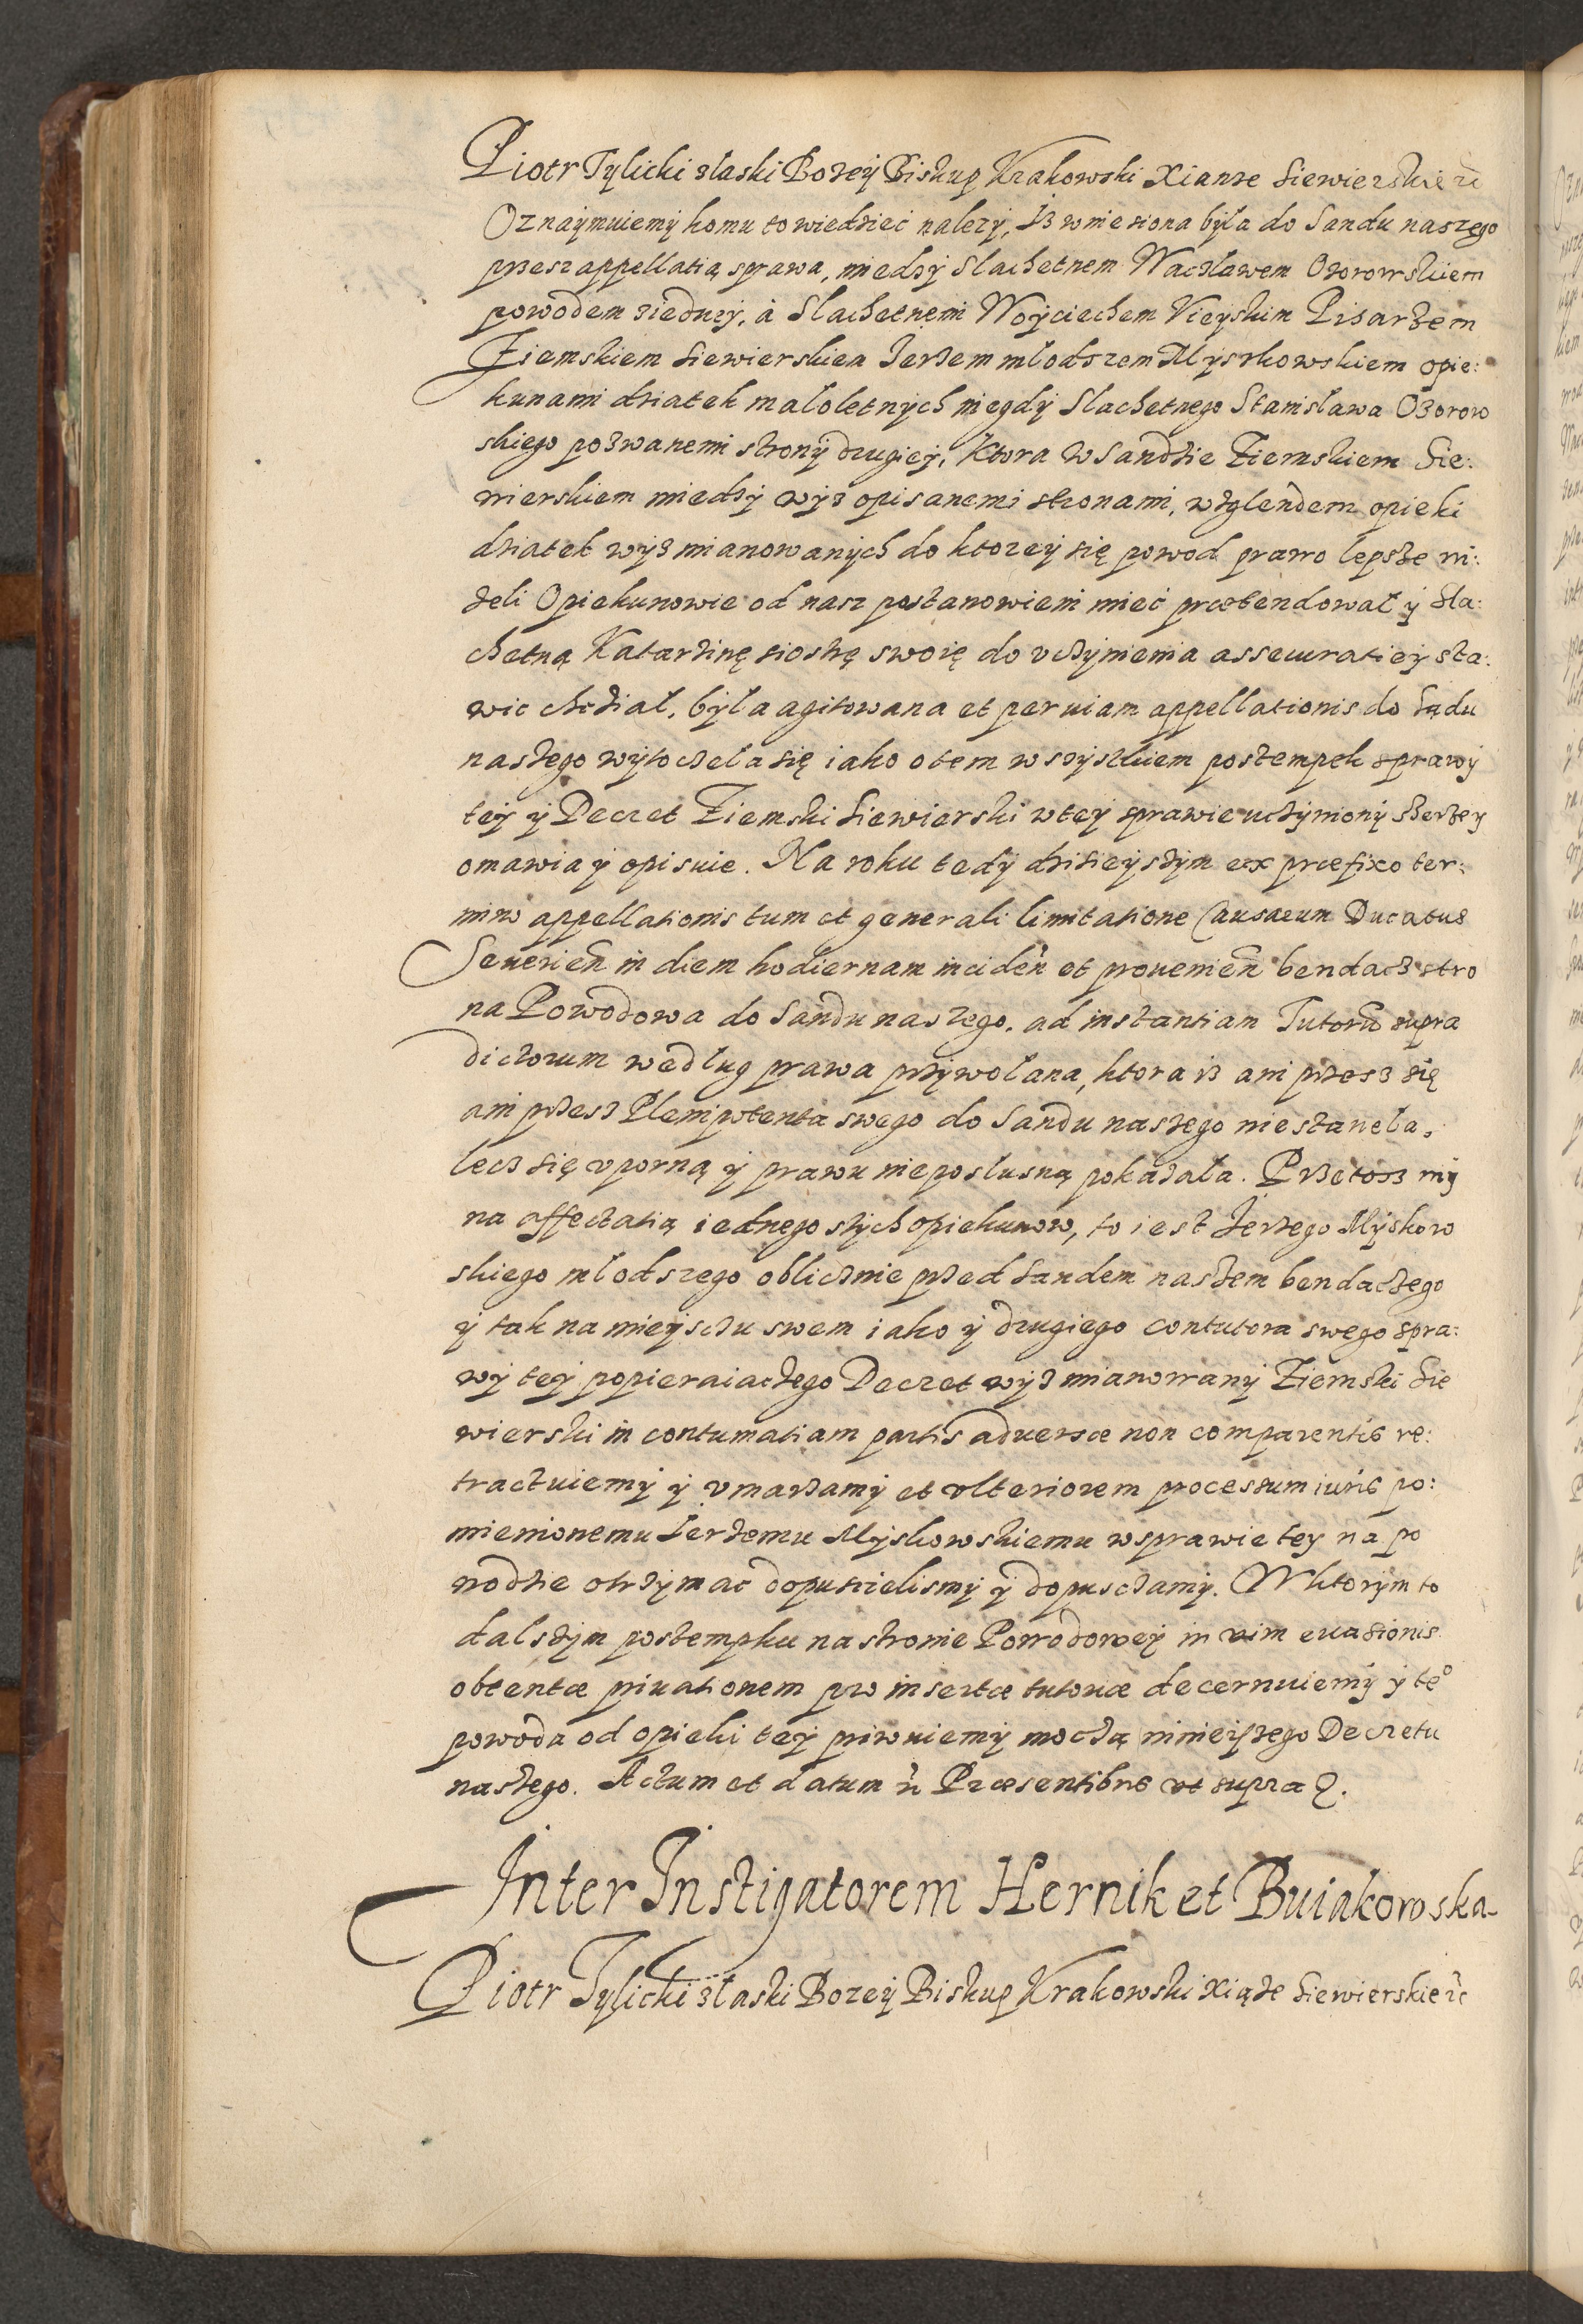 Piotr Tylicki zlaski Bozey Biskup Krakowski Xianze Siewierskie etc
Oznaymuiemy komu to wiedziec nalezy, Iz wniesiona była do Sandu naszego
przesz appellatią sprawa, miedzy Slachetnem Waczławem Ozorowskiem
powodem ziedney, à Slachetnemi Woyciechem Kieyskim Pisarzem
Ziemskiem Siewierskiem Jerzem młodszem Myszkowskiem opie:
kunami dziatek maloletnych niegdy Slachetnego Stanisława Ozorow
skiego pozwanemi strony drugiey, Ktora w Sandzie Ziemskiem Sie:
wierskiem miedzy wyz opisanemi stronami, wzglendem opieki
dziatek wyz mianowanych do ktorey się powod prawo lepsze ni:
zeli Opiekunowie od nasz postanowieni miec prætendował y Sla:
chetną Katarzinę siostrę swoię do vczynienia assecuratiey sta:
wic chcział, była agitowana et per uiam appellationis do Sądu
naszego wytoczeła się iako otem wszystkiem postempek sprawy
tey y Decret Ziemski Siewierski wtey sprawie uczyniony szerzey
omawia y opisuie. Na roku tedy dzisieyszym ex præfixo ter:
mino appellationis tum et generali limitatione Causarum Ducatus
Seuerien in diem hodiernam inciden et prouenien bendacz stro
na Powodowa do Sandu naszego. ad instantiam Tutorũ supra
dictorum według prawa przywołana, ktora iz ani przesz się
ani przesz Plenipotenta swego do Sandu naszego niestaneła,
lecz się vporną y prawu nieposlusną pokazała. Przetosz my
na affectatią iednego stych opiekunow, to iest Jerzego Myskow
skiego młodszego oblicznie przed Sandem naszem bendaczego
y tak na mieysczu swem iako y drugiego contutora swego spra:
wy tey popieraiaczego Decret wyz mianowany Ziemski Sie
wierski in contumatiam partis aduersæ non comparentis re:
tractuiemy y vmarzamy et vlteriorem processum iuris po:
mienionemu Jerzemu Myskowskiemu wsprawie tey na po
wodzie otrzymac dopuscielismy y dopusczamy. W ktorym to
dalszym postempku na stronie Powodowey in vim euasionis
obtentæ priuationem pro insertæ tutoriæ decernuiemy y te°
powoda od opieki tey priwuiemy moczą ninieyszego Decretu
naszego. Actum et datum ũ Præsentibus vt supra.
Inter Instigatorem Hernik et Buiakowska
Piotr Tylicki zlaski Bozey Biskup Krakowski Xiąze Siewierskie etc